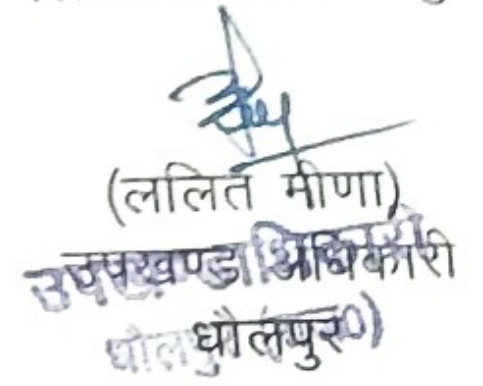 (ललित मीणा)
उपखण्ड अधिकारी
धौलपुर